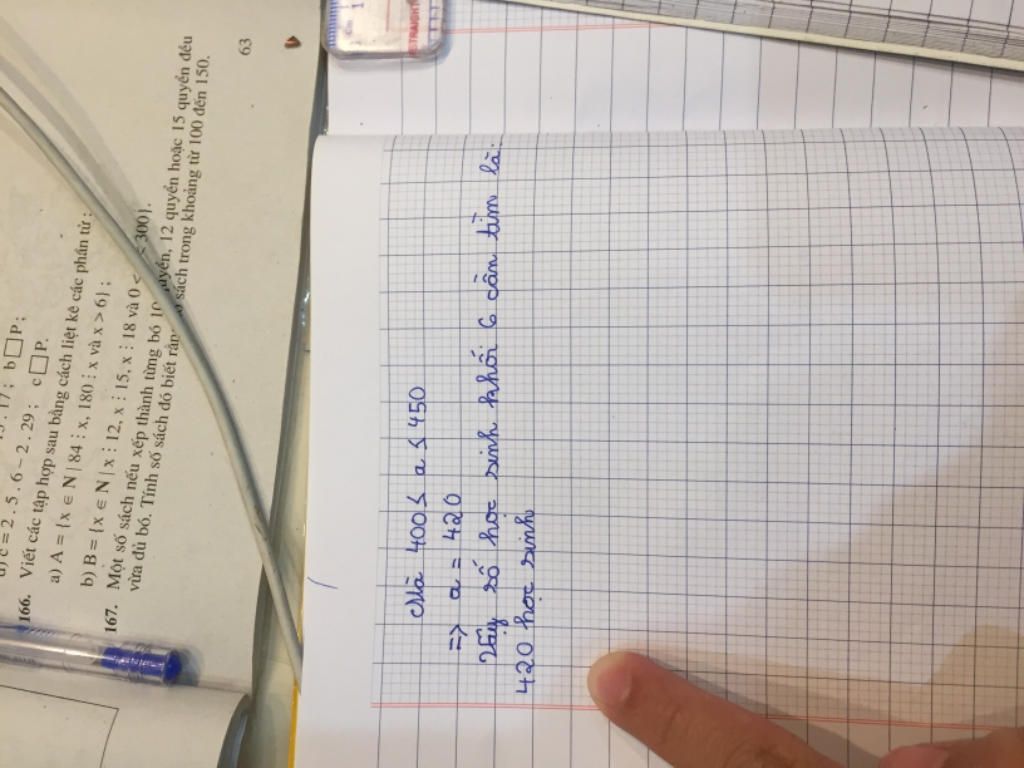 c = 2 . 5 . 6 – 2 . 29 ; c □ P.
17 ; b □ P ;
166. Viết các tập hợp sau bằng cách liệt kê các phần tử :
a) A = {x ∈ N | 84 ⋮ x, 180 ⋮ x và x > 6} ;
b) B = {x ∈ N | x ⋮ 12, x ⋮ 15, x ⋮ 18 và 0 < < 300}.
167. Một số sách nếu xếp thành từng bó 10 quyển, 12 quyển hoặc 15 quyển đều
vừa đủ bó. Tính số sách đó biết rằng sách trong khoảng từ 100 đến 150.
63
STRAIGHT
Mà 400 ≤ a ≤ 450
=> a = 420
Vậy số học sinh khối 6 cần tìm là:
420 học sinh